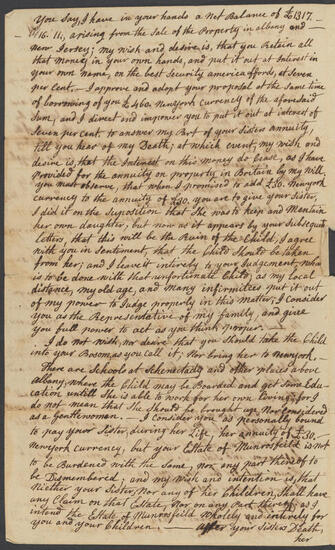 You Say, I have in your hands a Net Balance of £1317.
16.11, arising from the Sale of the Property in albany and
new Jersey; my wish and desire is, that you Retain all
that Money in your own hands, and put it out at Interest in
your own name, on the best Security america affords, at Seven
per Cent. I approve and adopt your proposal at the Same time
of borrowing of you £460. Newyork Currency of the aforesaid
Sum, and I direct and impower you to put it out at interest of
Seven per cent. to answer my Part of your Sisters annuity
till you hear of my Death; at which event, my wish and
desire is, that the Interest on this Money do Cease, as I have
Provided for the annuity on property in Britain by my Will.
You must observe, that when I promised to add £30. Newyork
currency to the annuity of £30. you are to give your Sister,
I did it on the Suposition that She was to keep and Mantain
her own daughter, but now as it appears by your Subsequent
letter, that this will be the Ruin of the Child, I agree
with you in Sentiment, that the Child Should be taken
from her; and I leave it intirely to your judgement, what
is to be done with that unfortunate Child, as my local
distance, my old age, and Many infirmities put it out
of my power to Judge properly in this Matter; I Consider
you as the Representative of my family, and give
you full power to act as you think proper.
I do not wish, nor desire that you Should take the Child
into your Bosom, as you call it, Nor bring her to Newyork.
There are Schools at Schenectady and other places above
Albany, where the Child may be Boarded and get Some Edu=
cation, untill She is able to work for her own living, for I
do not mean that She Should be brought up, Nor Considered
as a Gentlewoman. I Consider you as personally bound
to pay your Sister, during her Life, her annuity of £30.
Newyork currency, but your Estate of Munrosfeild is not
to be Burdened with the Same, Nor any part thereof to
be Dismembered; and my wish and intention is, that
Neither your Sister, Nor any of her Children, Shall have
any Claim on that Estate, Nor on any Part thereof, as I
intend the Estate of Munrosfeild Wholely and entirely for
you and your Children. After your Sisters Death,
her